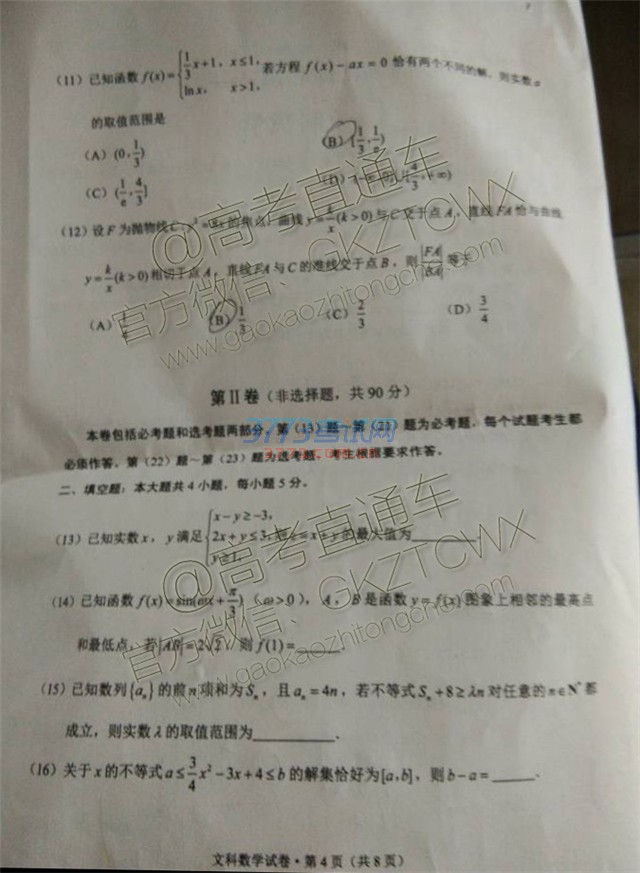 (11) 已知函数 f(x)={1/3 x+1, x≤1, ln x, x>1, 若方程 f(x)-ax=0 恰有两个不同的解，则实数 a
的取值范围是
(A) (0, 1/3)
(B) [1/3, 1/e)
(C) (1/e, 4/3]
(D) (-∞, 0]∪[4/3, +∞)
(12) 设 F 为抛物线 C: y²=8x 的焦点，曲线 y=k/x (k>0) 与 C 交于点 A，直线 FA 恰与曲线
y=k/x (k>0) 相切于点 A，直线 FA 与 C 的准线交于点 B，则 |FA|/|BA| 等于
(A)
(B) 1/3
(C) 2/3
(D) 3/4
第 II 卷 (非选择题，共 90 分)
本卷包括必考题和选考题两部分。第 (13) 题～第 (21) 题为必考题，每个试题考生都
必须作答。第 (22) 题～第 (23) 题为选考题，考生根据要求作答。
二、填空题：本大题共 4 小题，每小题 5 分。
(13) 已知实数 x，y 满足 {x-y≥-3, 2x+y≤3, y≥1, 则 z=x+y 的最大值为
(14) 已知函数 f(x)=sin(ωx+π/3) (ω>0)，A，B 是函数 y=f(x) 图象上相邻的最高点
和最低点，若 |AB|=2√2，则 f(1)=
(15) 已知数列 {aₙ} 的前 n 项和为 Sₙ，且 aₙ=4n，若不等式 Sₙ+8≥λn 对任意的 n∈N* 都
成立，则实数 λ 的取值范围为
(16) 关于 x 的不等式 a≤3/4 x²-3x+4≤b 的解集恰好为 [a,b]，则 b-a=
文科数学试卷·第 4 页 (共 8 页)
@高考直通车
官方微信：GKZTCWX
www.gaokaozhitongche.com
@高考直通车
官方微信：GKZTCWX
www.gaokaozhitongche.com
3773考试网